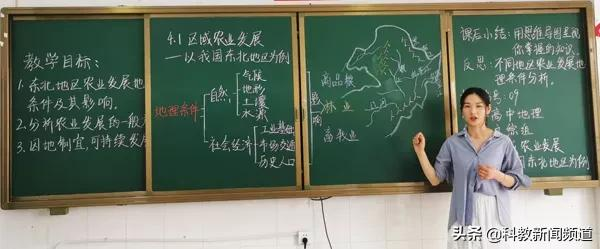 教学目标：
1.东北地区农业发展地
条件及其影响。
2.分析农业发展的一般
3.因地制宜，可持续发展
4.1区域农业发展
——以我国东北地区为例
地理条件
自然
气候
地形
土壤
水源
社会经济
工业基础
市场交通
历史人口
影响
商品粮
林业
畜牧业
课后小结：用思维导图呈现
你掌握的知识。
反思：不同地区农业发展地
理条件分析。
:09
高中地理
综组
农业发展
国东北地区为例
头条@科教新闻频道